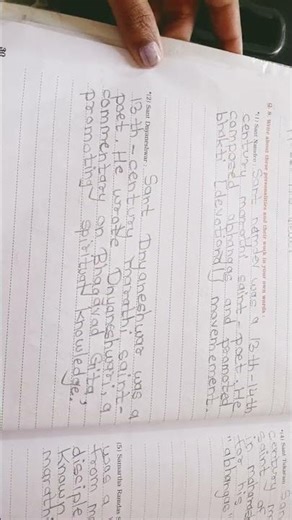 Q. 8: Write about these personalities and their work in your own words.
*1) Sant Namdev: Sant namdev was a 13th-14th
century marathi saint-poet. He
composed abhangs and promoted
bhakti (devotional) movement.
*2) Sant Dnyaneshwar: Sant Dnyaneshwar was a
13th-century marathi saint-
poet. He wrote Dnyaneshwari, a
commentary on Bhagavad Gita,
promoting spiritual knowledge.
30
*4) Sant Tukaram:
century
saint
for his
"abhangas
(5) Samartha Ramdas
was a
from
disciple
known
marath